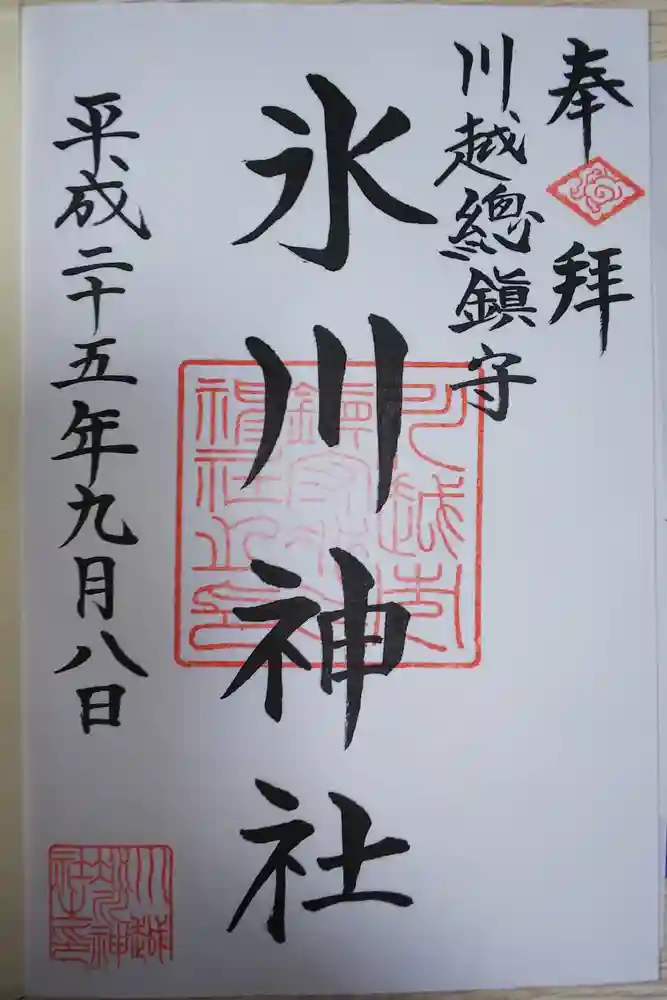 奉拝
川越總鎮守
氷川神社
平成二十五年九月八日